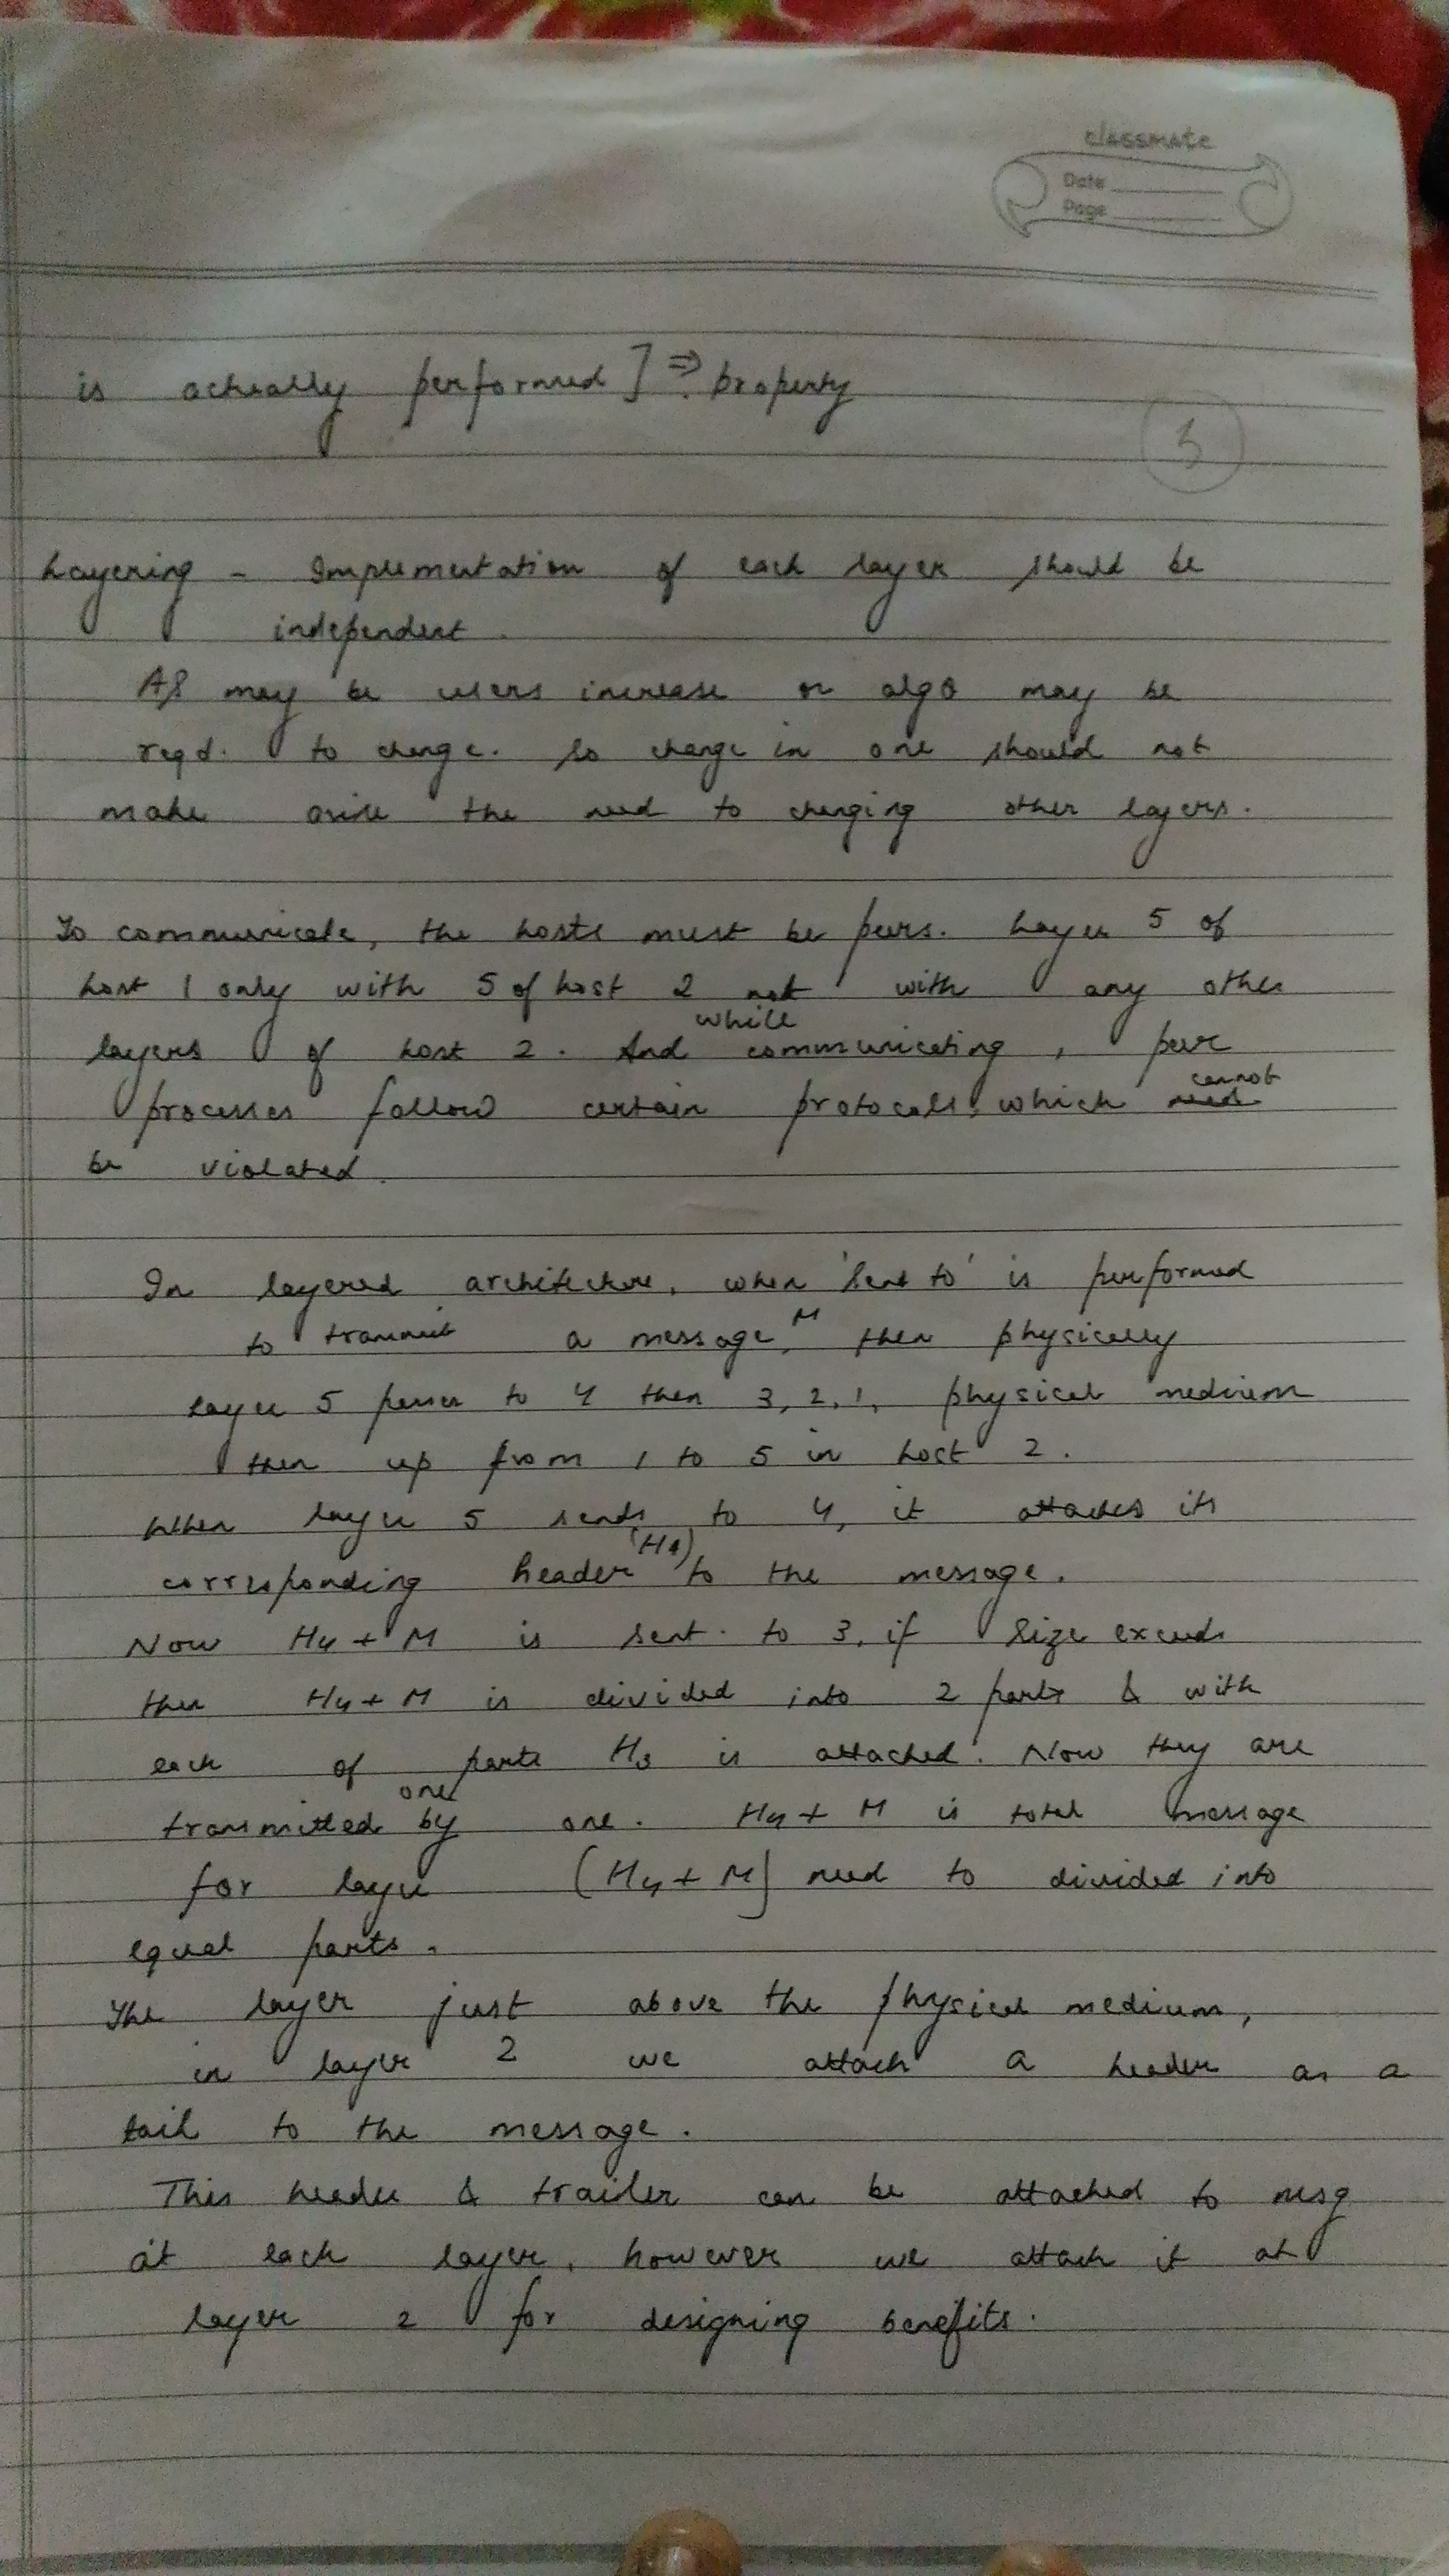 classmate
Date
Page
is actually performed ] ⇒ property
3
Layering - Implementation of each layer should be
independent.
As may be users increase or algo may be
reqd. to change. So change in one should not
make arise the need to changing other layers.
To communicate, the hosts must be peers. Layer 5 of
host 1 only with 5 of host 2 not with any other
layers of host 2. And while communicating, peer
processes follow certain protocols, which cannot
be violated.
In layered architecture, when 'sent to' is performed
to transmit a message M, then physically
layer 5 passes to 4 then 3, 2, 1, physical medium
then up from 1 to 5 in host 2.
When layer 5 sends to 4, it attaches its
corresponding header (H4) to the message.
Now H4 + M is sent to 3, if size exceeds
then H4 + M is divided into 2 parts & with
each of parts H3 is attached. Now they are
transmitted one by one. H4 + M is total message
for layer (H4 + M) need to divided into
equal parts.
The layer just above the physical medium,
in layer 2 we attach a header as a
tail to the message.
This header & trailer can be attached to msg
at each layer, however we attach it at
layer 2 for designing benefits.